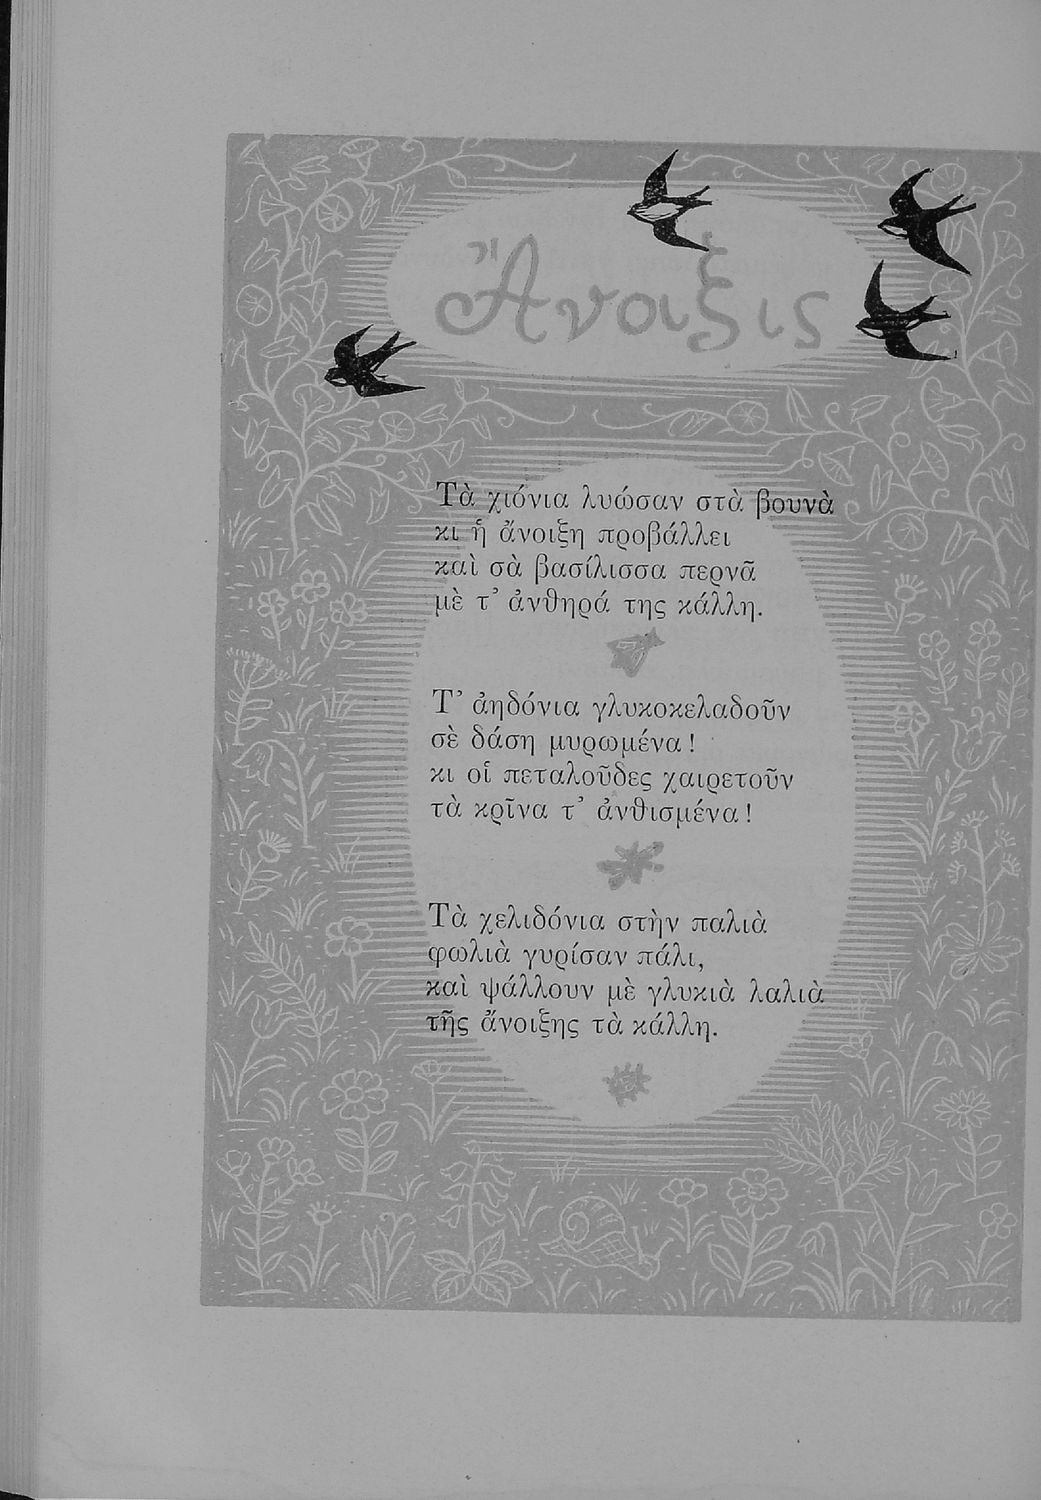 Ἄνοιξις
Τὰ χιόνια λυώσαν στὰ βουνὰ
κι ἡ ἄνοιξη προβάλλει
καὶ σὰ βασίλισσα περνᾶ
μὲ τ᾽ ἀνθηρά της κάλλη.
Τ᾽ ἀηδόνια γλυκοκελαδοῦν
σὲ δάση μυρωμένα!
κι οἱ πεταλοῦδες χαιρετοῦν
τὰ κρῖνα τ᾽ ἀνθισμένα!
Τὰ χελιδόνια στὴν παλιὰ
φωλιὰ γυρίσαν πάλι,
καὶ ψάλλουν μὲ γλυκιὰ λαλιὰ
τῆς ἄνοιξης τὰ κάλλη.